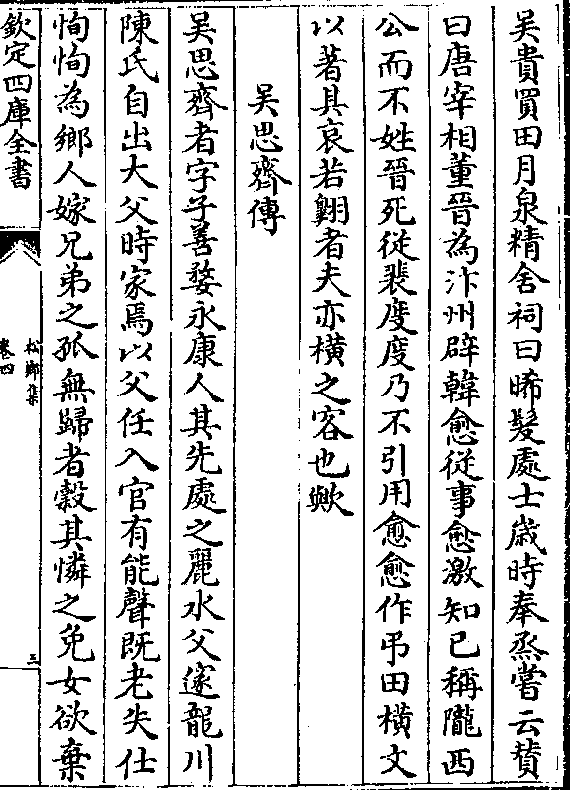 吳貴買田月泉精舍祠曰晞髮處士歲時奉烝嘗云贊
曰唐宰相董晉為汴州辟韓愈從事愈激知已稱隴西
公而不姓晉死從裴度度乃不引用愈愈作弔田橫文
以著其哀若翺者夫亦橫之客也歟
吳思齊傳
吳思齊者字子善婺永康人其先處之麗水父邃龍川
陳氏自出大父時家焉以父任入官有能聲既老失仕
恂恂為鄉人嫁兄弟之孤無歸者穀其憐之免女欲棄
欽定四庫全書
松鄉集
卷四
三